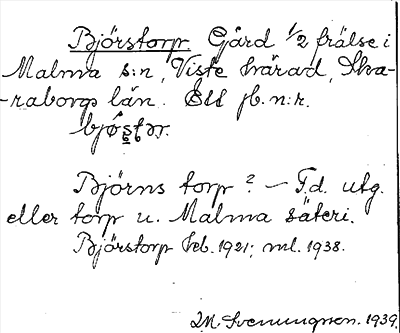 Björstorp Gård 1/2 frälse i
Malma s:n, Viste härad, Ska-
-raborgs län. Ett jb. n:r.
bjǿstǝr.
Björns torp? — F.d. utg.
eller torp u. Malma säteri.
Björstorp Geb. 1921; ml. 1938.
M. Svenungson. 1939.